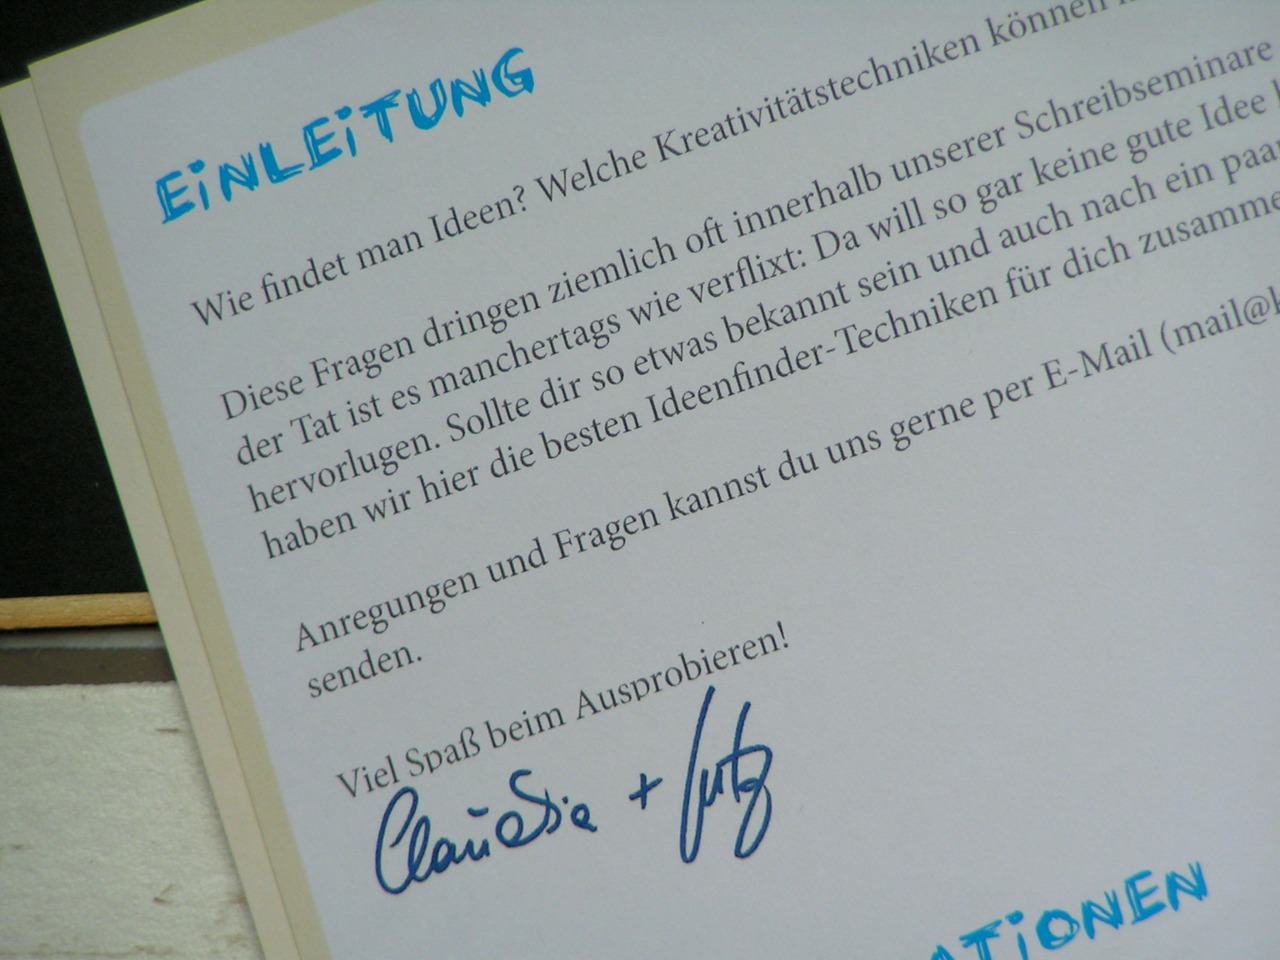 EiNLEiTUNG
Wie findet man Ideen? Welche Kreativitätstechniken können
Diese Fragen dringen ziemlich oft innerhalb unserer Schreibseminare
der Tat ist es manchertags wie verflixt: Da will so gar keine gute Idee
hervorlugen. Sollte dir so etwas bekannt sein und auch nach ein paar
haben wir hier die besten Ideenfinder-Techniken für dich zusamme
Anregungen und Fragen kannst du uns gerne per E-Mail (mail@
senden.
Viel Spaß beim Ausprobieren!
Claudia +
ATiONEN